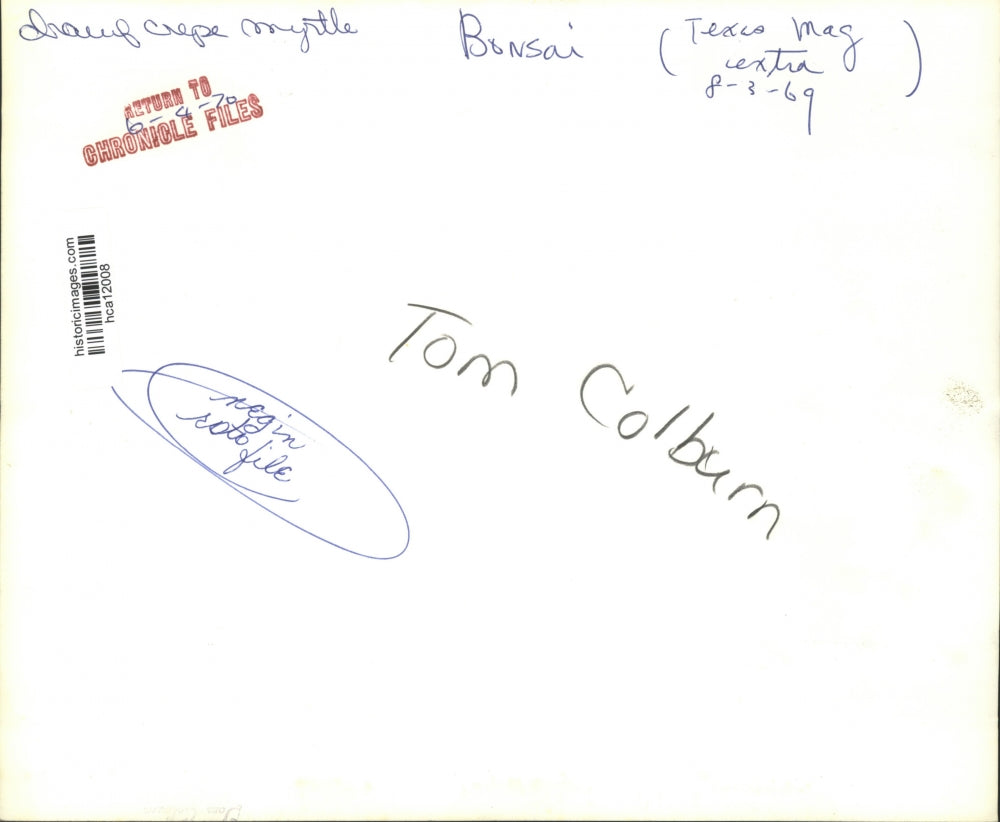 crepe myrtle
Bonsai
(Texas Mag
extra
8-3-69)
RETURN TO
6-4-70
CHRONICLE FILES
historicimages.com
hca12008
Tom Colburn
negin
roto
file